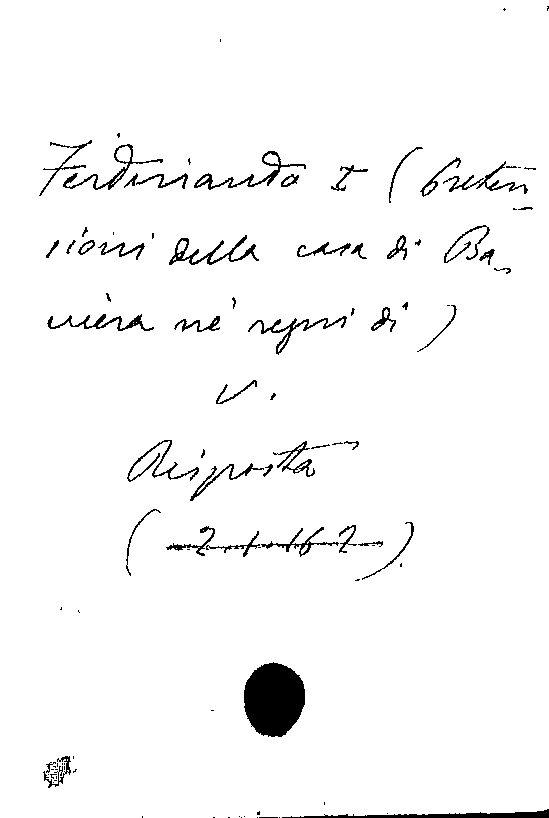 Ferdinando I (preten-
sioni della casa di Ba-
viera ne' regni di)
V.
Risposta
(2.1.16 2).